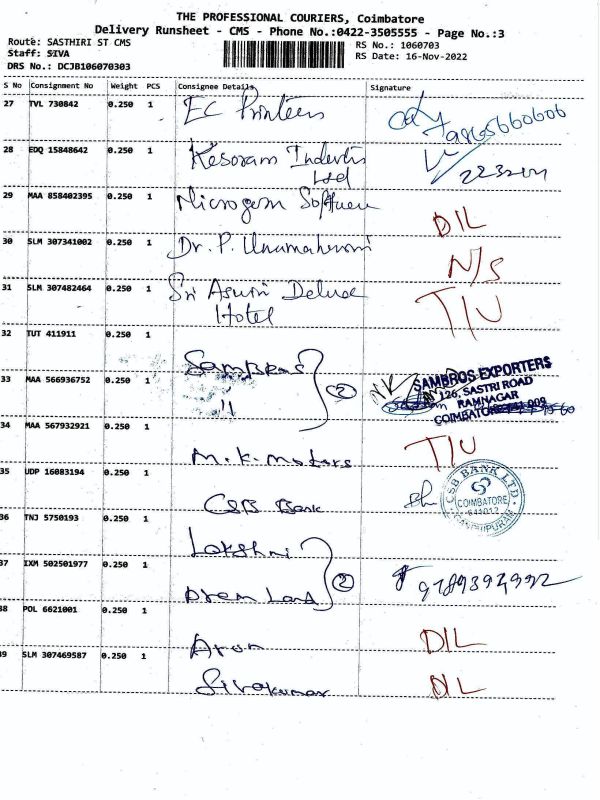 THE PROFESSIONAL COURIERS, Coimbatore
Delivery Runsheet - CMS - Phone No.:0422-3505555 - Page No.:3
Route: SASTHIRI ST CMS
RS No.: 1060703
Staff: SIVA
RS Date: 16-Nov-2022
DRS No.: DCJB106070303
S No Consignment No Weight PCS Consignee Details Signature
27 TVL 730842 0.250 1 EC Printers
9865660606
28 EDQ 15848642 0.250 1 Kesoram
Ltd
29 MAA 858402395 0.250 1 Microgem DIL
30 SLM 307341002 0.250 1 Dr. P. N/S
31 SLM 307482464 0.250 1 Sri Aswini Deluxe T/U
Hotel
32 TUT 411911 0.250 1
33 MAA 566936752 0.250 1 " 2
SAMBROS EXPORTERS
126, SASTRI ROAD
RAMNAGAR
34 MAA 567932921 0.250 1 M.K. Motors T/U
35 UDP 16083194 0.250 1 CSB Bank
CSB BANK LTD.
COIMBATORE
641012
36 TNJ 5750193 0.250 1 Lakshmi
37 IXM 502501977 0.250 1 Prem Land 2
38 POL 6621001 0.250 1 Arun DIL
39 SLM 307469587 0.250 1 Sivakumar DIL